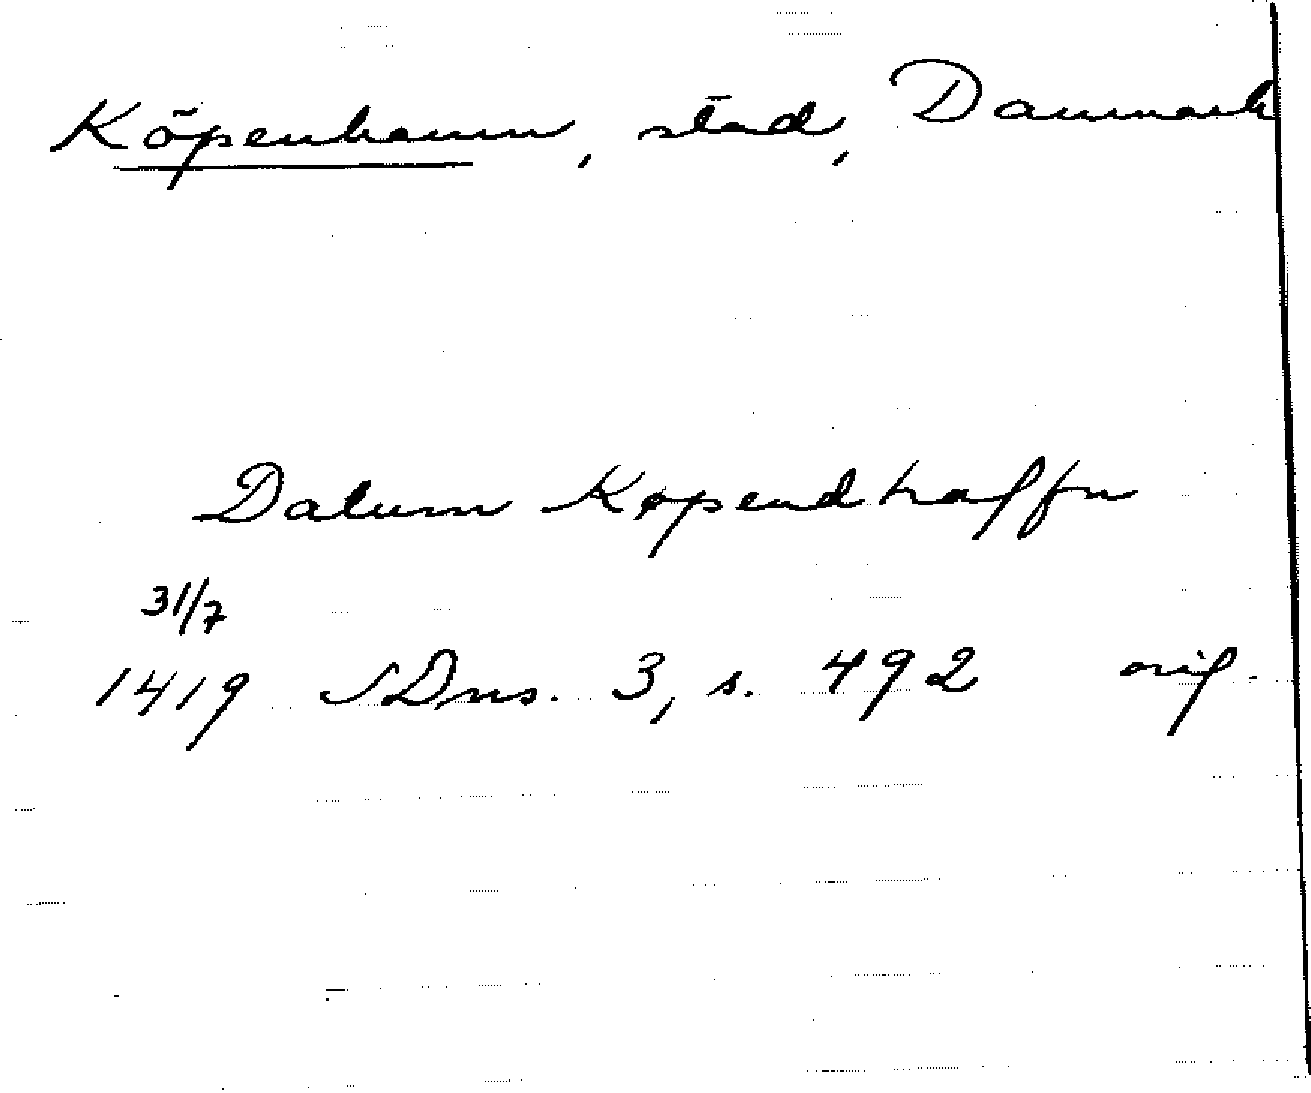 Köpenhamn, stad, Danmark
Datum Köpendhaffn
31/7
1419 SDns. 3, s. 492 orig.